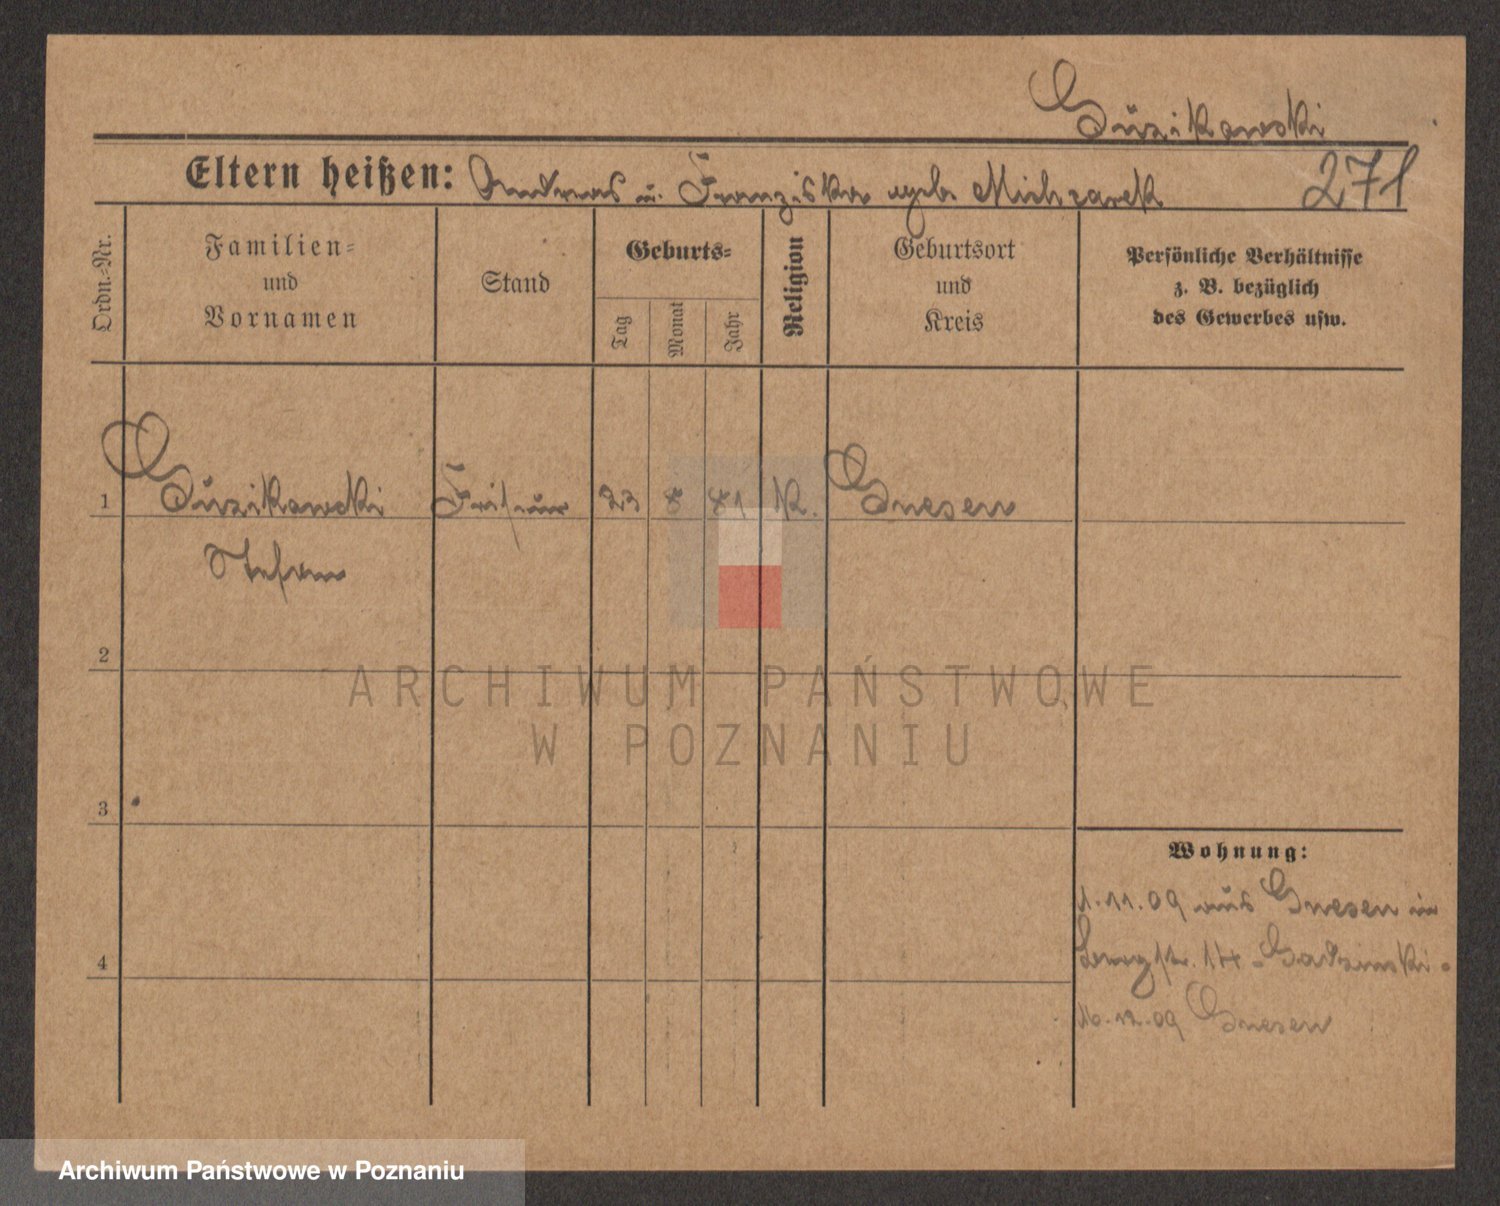 Guzikowski
Eltern heißen: Andreas u. Franziska geb. Michzarek
271
Ordn.-Nr.
Familien-
und
Vornamen
Stand
Geburts-
Tag
Monat
Jahr
Religion
Geburtsort
und
Kreis
Persönliche Verhältnisse
z. B. bezüglich
des Gewerbes usw.
1
Guzikowski
Friseur
23
8
81
K.
Gnesen
Stefan
2
3
4
Wohnung:
1.11.09 aus Gnesen in
Langstr. 14
16.12.09 Gnesen
ARCHIWUM PAŃSTWOWE
W POZNANIU
Archiwum Państwowe w Poznaniu